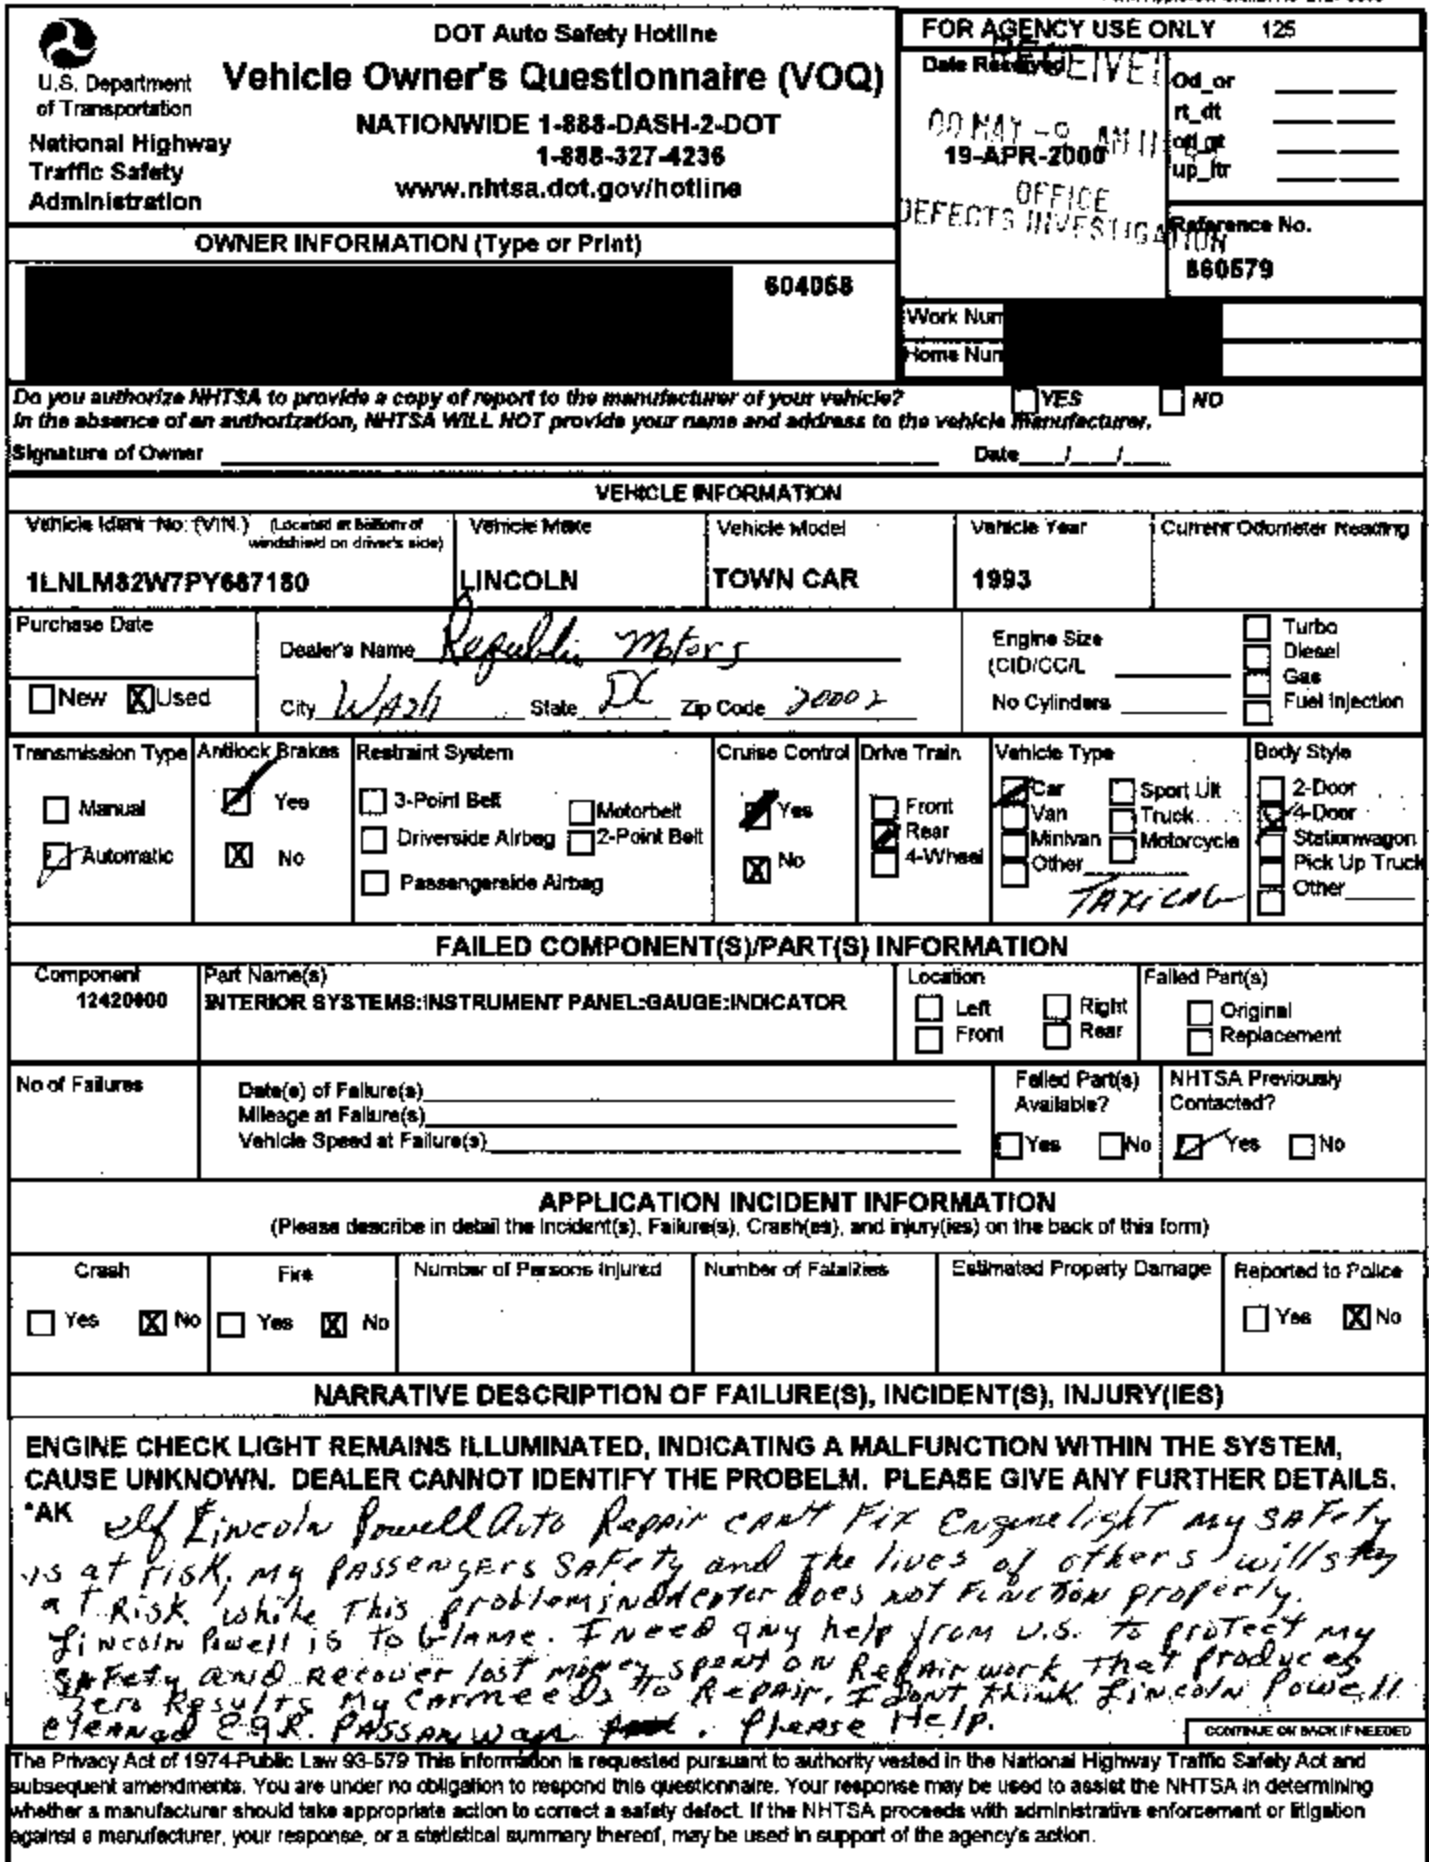 DOT Auto Safety Hotline
Vehicle Owner's Questionnaire (VOQ)
NATIONWIDE 1-888-DASH-2-DOT
1-888-327-4236
www.nhtsa.dot.gov/hotline
U.S. Department
of Transportation
National Highway
Traffic Safety
Administration
FOR AGENCY USE ONLY 125
Date Received
00 MAY -9 AM 11
19-APR-2000
OFFICE
DEFECTS INVESTIGATION
Od_or
rt_dt
od_gt
up_ltr
Reference No.
860579
OWNER INFORMATION (Type or Print)
604068
Work Num
Home Num
Do you authorize NHTSA to provide a copy of report to the manufacturer of your vehicle? YES NO
In the absence of an authorization, NHTSA WILL NOT provide your name and address to the vehicle manufacturer.
Signature of Owner Date / /
VEHICLE INFORMATION
Vehicle Ident No. (VIN.) (Located at bottom of
windshield on driver's side)
1LNLM82W7PY687180
Vehicle Make
LINCOLN
Vehicle Model
TOWN CAR
Vehicle Year
1993
Current Odometer Reading
Purchase Date
New X Used
Dealer's Name Republic Motors
City WASH State DC Zip Code 20002
Engine Size
(CID/CC/L
No Cylinders
Turbo
Diesel
Gas
Fuel Injection
Transmission Type
Manual
Automatic
Antilock Brakes
Yes
X No
Restraint System
3-Point Belt
Motorbelt
Driverside Airbag
2-Point Belt
Passengerside Airbag
Cruise Control
Yes
X No
Drive Train
Front
Rear
4-Wheel
Vehicle Type
Car Sport Ult
Van Truck
Minivan Motorcycle
Other
TAXICAB
Body Style
2-Door
4-Door
Stationwagon
Pick Up Truck
Other
FAILED COMPONENT(S)/PART(S) INFORMATION
Component
12420000
Part Name(s)
INTERIOR SYSTEMS:INSTRUMENT PANEL:GAUGE:INDICATOR
Location
Left Right
Front Rear
Failed Part(s)
Original
Replacement
No of Failures
Date(s) of Failure(s)
Mileage at Failure(s)
Vehicle Speed at Failure(s)
Failed Part(s)
Available?
Yes No
NHTSA Previously
Contacted?
Yes No
APPLICATION INCIDENT INFORMATION
(Please describe in detail the Incident(s), Failure(s), Crash(es), and injury(ies) on the back of this form)
Crash
Yes X No
Fire
Yes X No
Number of Persons Injured
Number of Fatalities
Estimated Property Damage
Reported to Police
Yes X No
NARRATIVE DESCRIPTION OF FAILURE(S), INCIDENT(S), INJURY(IES)
ENGINE CHECK LIGHT REMAINS ILLUMINATED, INDICATING A MALFUNCTION WITHIN THE SYSTEM,
CAUSE UNKNOWN. DEALER CANNOT IDENTIFY THE PROBELM. PLEASE GIVE ANY FURTHER DETAILS.
*AK If Lincoln Powell Auto Repair can't Fix Engine light my safety
is at risk. My passengers safety and the lives of others will stay
at Risk while This problem indicator does not Function properly.
Lincoln Powell is to blame. I need any help from U.S. to protect my
safety and Recover lost money spent on Repair work That produces
zero Results. My car needs to Repair. I dont think Lincoln Powell
cleaned E.G.R. Passanways. Please Help.
CONTINUE ON BACK IF NEEDED
The Privacy Act of 1974-Public Law 93-579 This information is requested pursuant to authority vested in the National Highway Traffic Safety Act and
subsequent amendments. You are under no obligation to respond this questionnaire. Your response may be used to assist the NHTSA in determining
whether a manufacturer should take appropriate action to correct a safety defect. If the NHTSA proceeds with administrative enforcement or litigation
against a manufacturer, your response, or a statistical summary thereof, may be used in support of the agency's action.